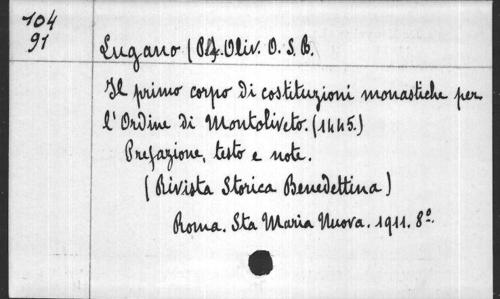 104
91
Lugano (Plac. Oliv. O. S. B.
Il primo corpo di costituzioni monastiche per
l'Ordine di Montoliveto. (1445.)
Prefazione, testo e note.
(Rivista Storica Benedettina)
Roma. Sta Maria Nuova. 1911. 8º.